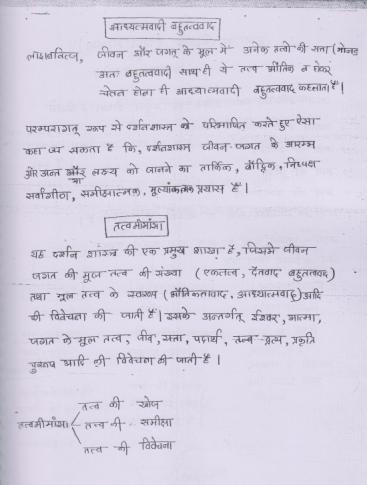 आध्यात्मवादी बहुतत्ववाद
लाइबनित्ज, जीवन और जगत् के मूल में अनेक तत्वो की सत्ता (मोनड
अतः बहुतत्ववादी साथ ही ये तत्व भौतिक न होकर
चेतन होना ही आध्यात्मवादी बहुतत्ववाद कहलाता है।
परम्परागत रूप से दर्शनशास्त्र को परिभाषित करते हुए ऐसा
कहा जा सकता है कि, दर्शनशास्त्र जीवन-जगत के आरम्भ
और अन्त और लक्ष्य को जानने का तार्किक, बौद्धिक, निष्पक्ष
या
सर्वांगीण, समीक्षात्मक, मूल्यांकनात्मक प्रयास है।
तत्वमीमांसा
यह दर्शन शास्त्र की एक प्रमुख शाखा है, जिसमे जीवन
जगत की मूल तत्व की संख्या (एकतत्व, द्वैतवाद बहुतत्ववाद)
तथा मूल तत्व के स्वरूप (भौतिकतावाद, आध्यात्मवाद) आदि
की विवेचना की जाती है। इसके अन्तर्गत् ईश्वर, आत्मा,
जगत के मूल तत्व, जीव, सत्ता, पदार्थ, द्रव्य, प्रकृति
पुरुष आदि की विवेचना की जाती है।
तत्व की खोज
तत्वमीमांसा तत्व की समीक्षा
तत्व की विवेचना